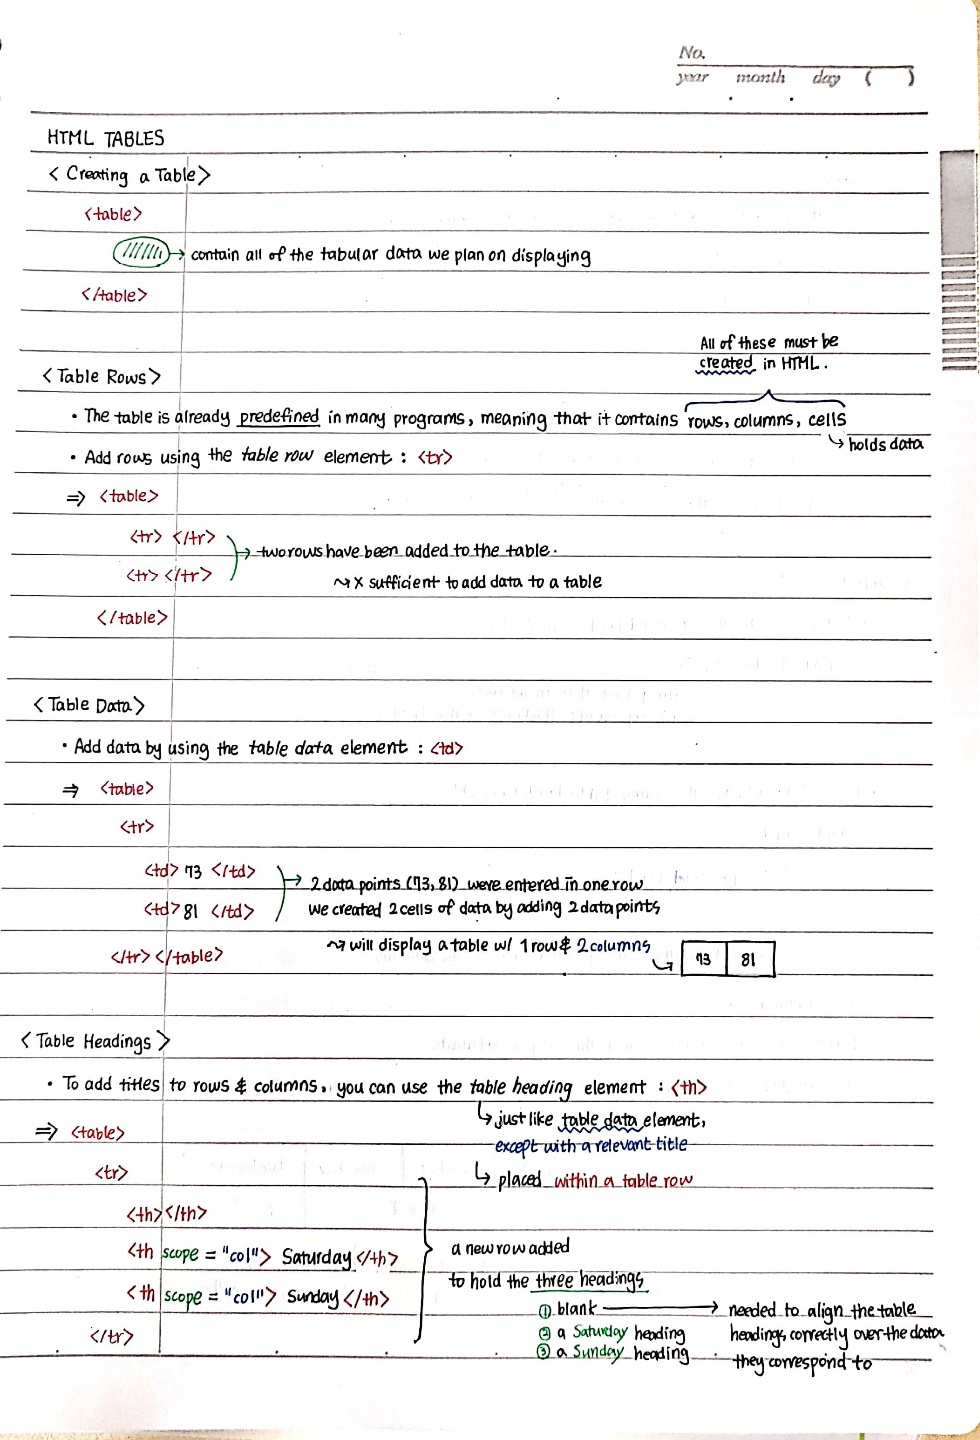 No.
year month day ( )
HTML TABLES
< Creating a Table >
<table>
→ contain all of the tabular data we plan on displaying
</table>
All of these must be
created in HTML.
< Table Rows >
• The table is already predefined in many programs, meaning that it contains rows, columns, cells
↳ holds data
• Add rows using the table row element : <tr>
⇒ <table>
<tr> </tr>
→ two rows have been added to the table.
<tr> </tr>
↝ x sufficient to add data to a table
</table>
< Table Data >
• Add data by using the table data element : <td>
⇒ <table>
<tr>
<td> 73 </td>
→ 2 data points (73, 81) were entered in one row
<td> 81 </td>
we created 2 cells of data by adding 2 data points
↝ will display a table w/ 1 row & 2 columns
</tr> </table>
73 81
< Table Headings >
• To add titles to rows & columns, you can use the table heading element : <th>
↳ just like table data element,
⇒ <table>
except with a relevant title
<tr>
↳ placed within a table row
<th> </th>
<th scope = "col"> Saturday </th>
a new row added
<th scope = "col"> Sunday </th>
to hold the three headings
① blank → needed to align the table
</tr>
② a Saturday heading headings correctly over the data
③ a Sunday heading they correspond to